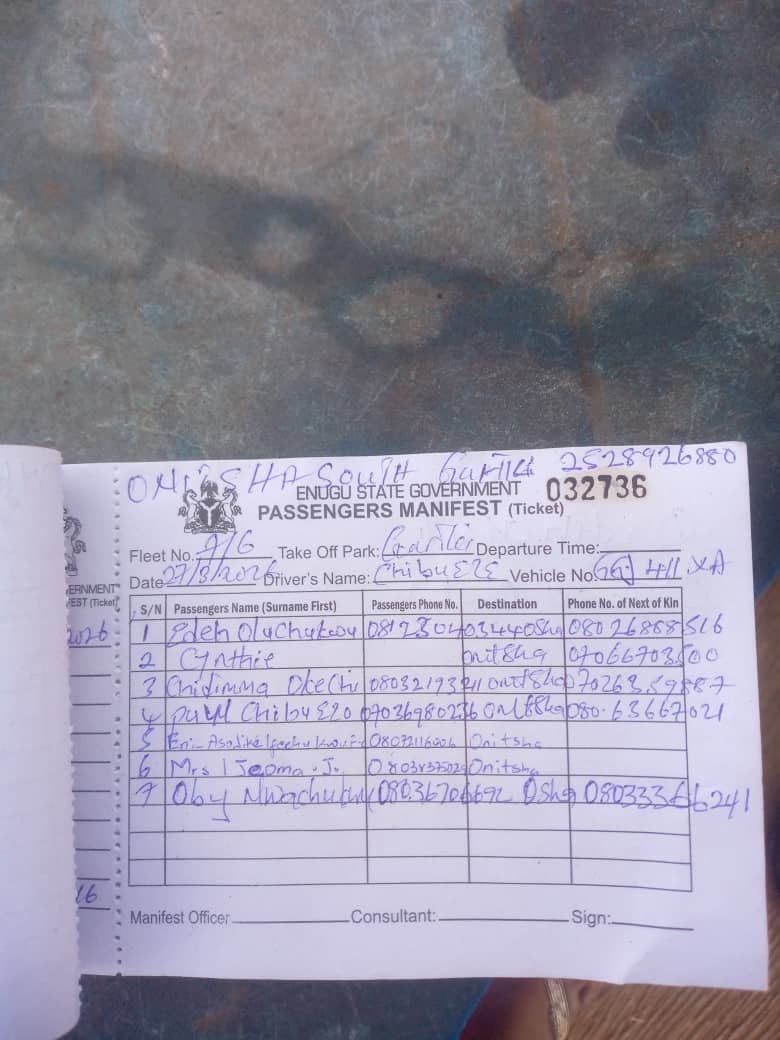 ONITSHA SOUTH 2528926880
ENUGU STATE GOVERNMENT 032736
PASSENGERS MANIFEST (Ticket)
Fleet No. 7/G Take Off Park: Departure Time:
Date 27/3/2026 Driver's Name: Chibueze Vehicle No. GGJ 411 XA
S/N Passengers Name (Surname First) Passengers Phone No. Destination Phone No. of Next of Kin
1 Edeh Oluchukwu 08123040344 Osha 08026888516
2 Cynthie Onitsha 07066703500
3 Chidimma Okechu 08032193211 Onitsha
4 Paul Chibuezo 07036980236 Onitsha 080.63667021
5 Onitsha
6 Mrs Ijeoma. J. Onitsha
7 Oby Nwachuku 08036706692 Osha 08033366241
Manifest Officer Consultant: Sign:
ERNMENT
EST (Ticket)
2026
16